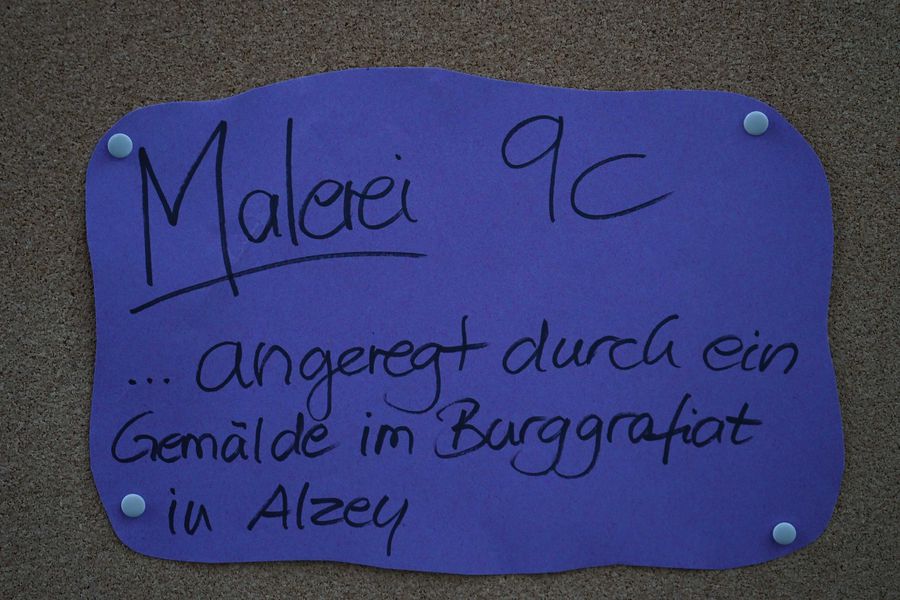 Malerei 9c
... angeregt durch ein
Gemälde im Burggrafiat
in Alzey